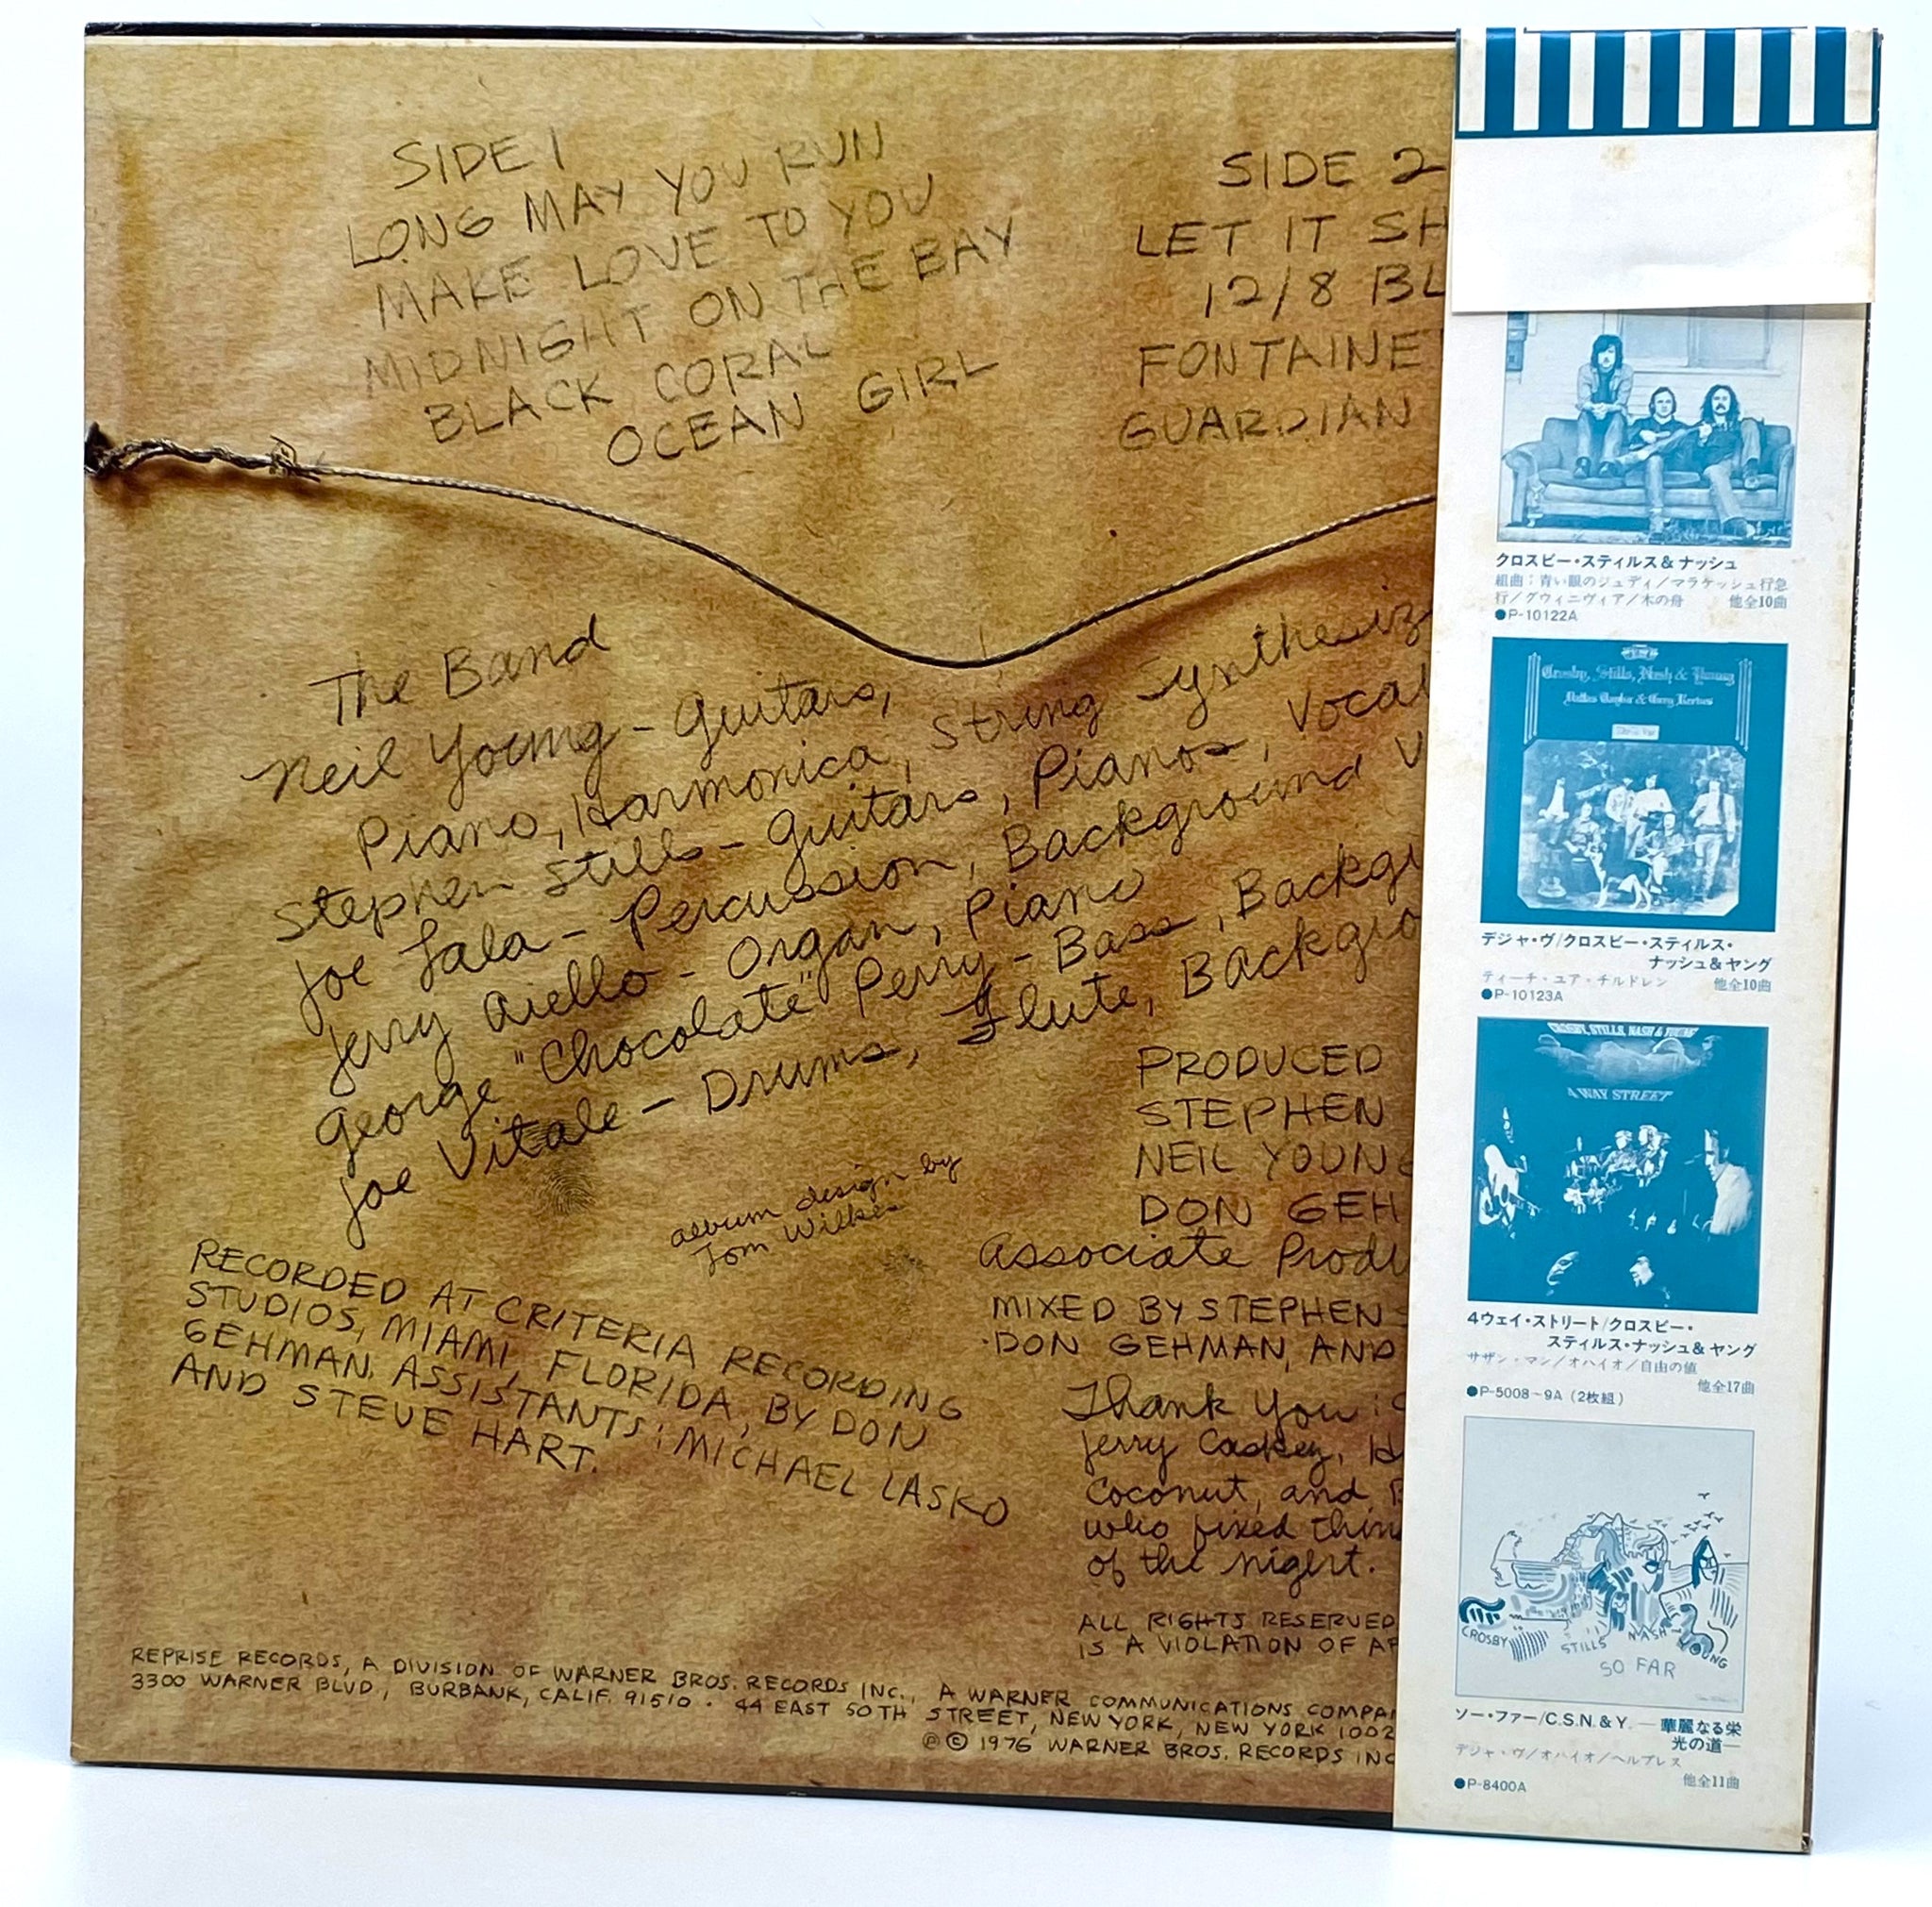 SIDE 1
LONG MAY YOU RUN
MAKE LOVE TO YOU
MIDNIGHT ON THE BAY
BLACK CORAL
OCEAN GIRL
SIDE 2
LET IT SH
12/8 BL
FONTAINE
GUARDIAN
The Band
Neil Young - Guitars,
Piano, Harmonica, String Synthesiz
Stephen Stills - Guitars, Pianos, Vocal
Joe Lala - Percussion, Background V
Jerry Aiello - Organ, Piano
George "Chocolate" Perry - Bass, Backgr
Joe Vitale - Drums, Flute, Backgro
album design by
Tom Wilkes
PRODUCED
STEPHEN
NEIL YOUNG
DON GEH
Associate Produ
MIXED BY STEPHEN S
DON GEHMAN, AND
Thank You:
Jerry Caskey, H
Coconut, and B
who fixed thin
of the night.
RECORDED AT CRITERIA RECORDING
STUDIOS, MIAMI, FLORIDA, BY DON
GEHMAN. ASSISTANTS: MICHAEL LASKO
AND STEVE HART.
ALL RIGHTS RESERVED
IS A VIOLATION OF AP
REPRISE RECORDS, A DIVISION OF WARNER BROS. RECORDS INC., A WARNER COMMUNICATIONS COMPA
3300 WARNER BLVD., BURBANK, CALIF. 91510 · 44 EAST 50TH STREET, NEW YORK, NEW YORK 1002
℗ © 1976 WARNER BROS. RECORDS INC
クロスビー・スティルス&ナッシュ
組曲:青い眼のジュディ/マラケッシュ行急
行/グウィニヴィア/木の舟 他全10曲
●P-10122A
Crosby, Stills, Nash & Young
Dallas Taylor & Greg Reeves
デジャ・ヴ/クロスビー・スティルス・
ナッシュ&ヤング
ティーチ・ユア・チルドレン 他全10曲
●P-10123A
CROSBY, STILLS, NASH & YOUNG
4 WAY STREET
4ウェイ・ストリート/クロスビー・
スティルス・ナッシュ&ヤング
サザン・マン/オハイオ/自由の値
他全17曲
●P-5008~9A (2枚組)
CROSBY STILLS NASH YOUNG
SO FAR
ソー・ファー/C.S.N.&Y. ―華麗なる栄
光の道―
デジャ・ヴ/オハイオ/ヘルプレス
他全11曲
●P-8400A